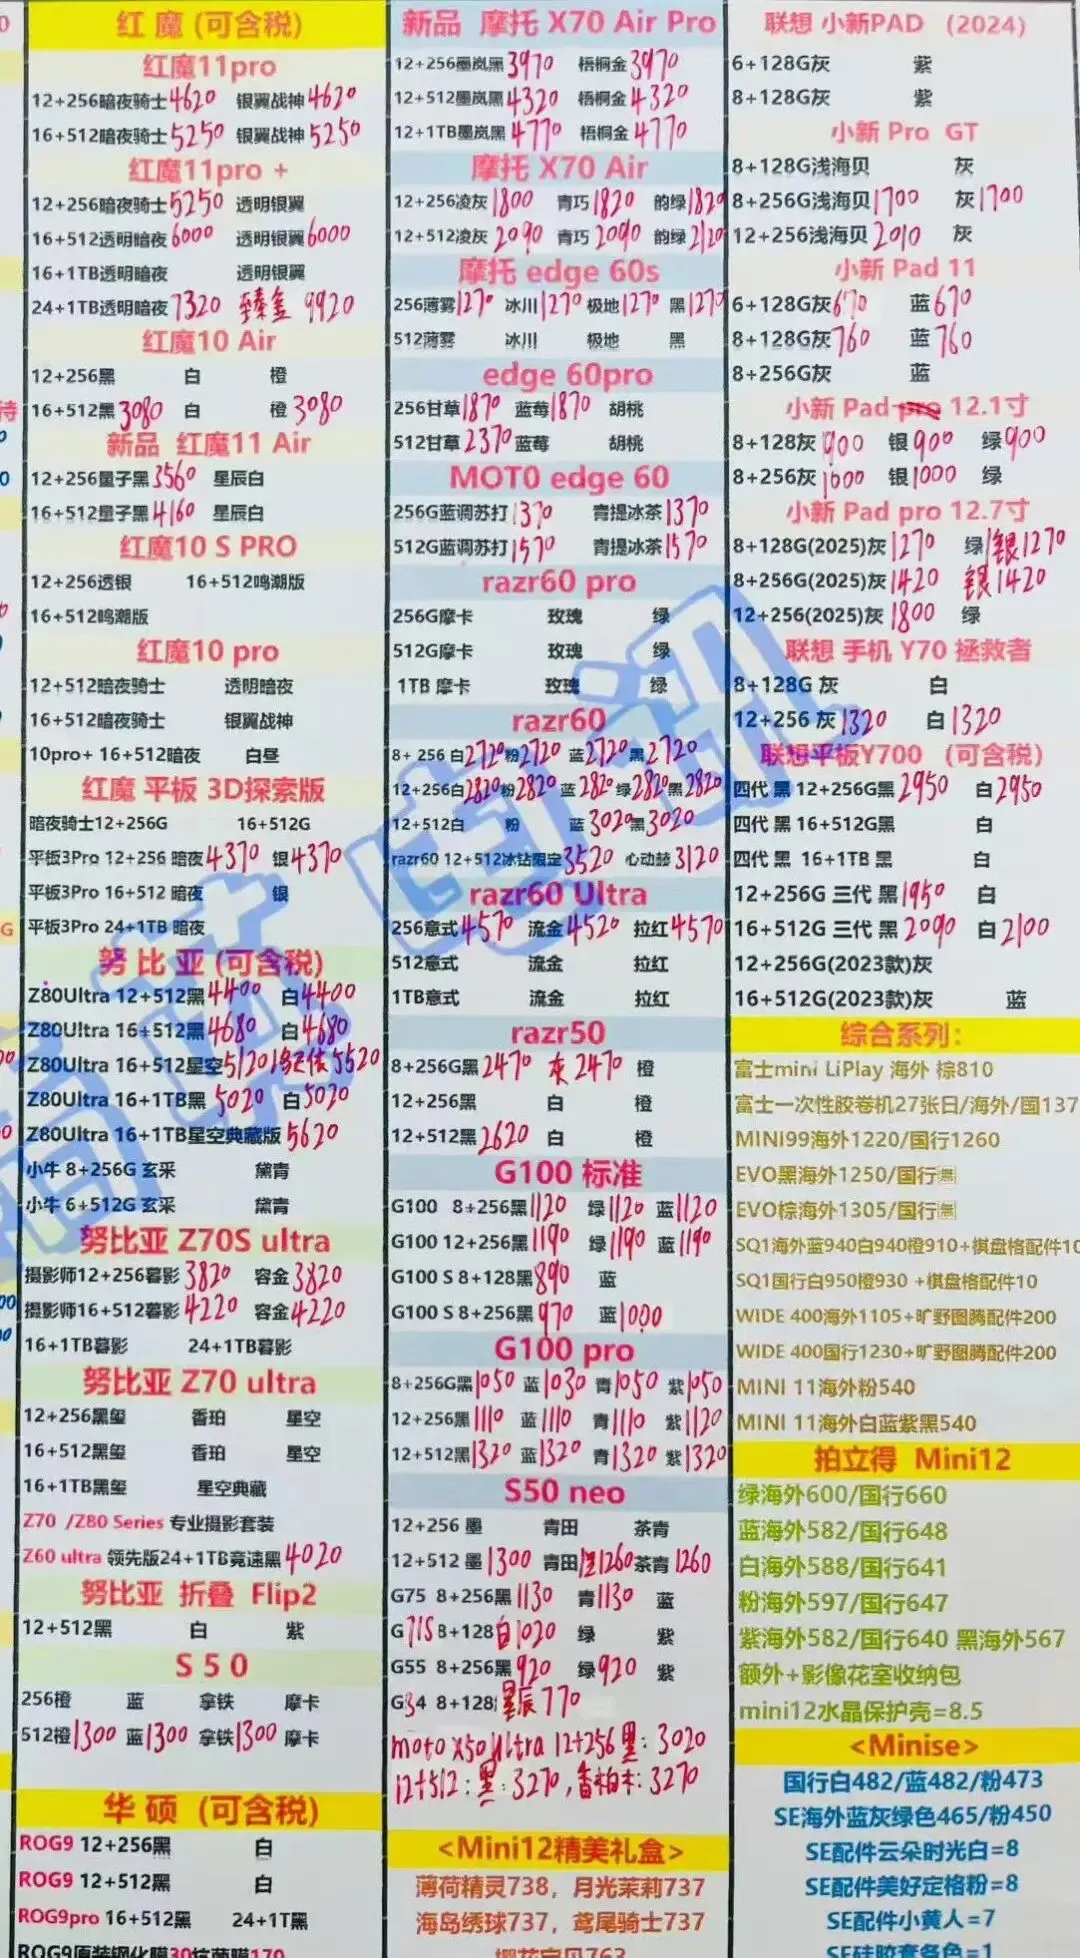 红 魔 (可含税)
红魔11pro
12+256暗夜骑士4620 银翼战神4620
16+512暗夜骑士5250 银翼战神5250
红魔11pro +
12+256暗夜骑士5250 透明银翼
16+512透明暗夜6000 透明银翼6000
16+1TB透明暗夜 透明银翼
24+1TB透明暗夜7320 臻金 9920
红魔10 Air
12+256黑 白 橙
16+512黑3080 白 橙3080
新品 红魔11 Air
12+256量子黑3560 星辰白
16+512量子黑4160 星辰白
红魔10 S PRO
12+256透银 16+512鸣潮版
16+512鸣潮版
红魔10 pro
12+512暗夜骑士 透明暗夜
16+512暗夜骑士 银翼战神
10pro+ 16+512暗夜 白昼
红魔 平板 3D探索版
暗夜骑士12+256G 16+512G
平板3Pro 12+256 暗夜4370 银4370
平板3Pro 16+512 暗夜 银
平板3Pro 24+1TB 暗夜
努 比 亚 (可含税)
Z80Ultra 12+512黑4400 白4400
Z80Ultra 16+512黑4680 白4680
Z80Ultra 16+512星空5120 5520
Z80Ultra 16+1TB黑 5020 白5020
Z80Ultra 16+1TB星空典藏版5620
小牛 8+256G 玄采 黛青
小牛 6+512G 玄采 黛青
努比亚 Z70S ultra
摄影师12+256暮影3820 容金3820
摄影师16+512暮影4220 容金4220
16+1TB暮影 24+1TB暮影
努比亚 Z70 ultra
12+256黑玺 香珀 星空
16+512黑玺 香珀 星空
16+1TB黑玺 星空典藏
Z70 /Z80 Series 专业摄影套装
Z60 ultra 领先版24+1TB竞速黑4020
努比亚 折叠 Flip2
12+512黑 白 紫
S 5 0
256橙 蓝 拿铁 摩卡
512橙1300 蓝1300 拿铁1300 摩卡
华 硕 (可含税)
ROG9 12+256黑 白
ROG9 12+512黑 白
ROG9pro 16+512黑 24+1T黑
ROG9原装钢化膜30抗蓝膜170
新品 摩托 X70 Air Pro
12+256墨岚黑3970 梧桐金3970
12+512墨岚黑4320 梧桐金4320
12+1TB墨岚黑4770 梧桐金4770
摩托 X70 Air
12+256凌灰1800 青巧1820 韵绿1820
12+512凌灰2090 青巧2090 韵绿2120
摩托 edge 60s
256薄雾1270 冰川1270 极地1270 黑1270
512薄雾 冰川 极地 黑
edge 60pro
256甘草1870 蓝莓1870 胡桃
512甘草2370 蓝莓 胡桃
MOT0 edge 60
256G蓝调苏打1370 青提冰茶1370
512G蓝调苏打1570 青提冰茶1570
razr60 pro
256G摩卡 玫瑰 绿
512G摩卡 玫瑰 绿
1TB 摩卡 玫瑰 绿
razr60
8+ 256 白2720 粉2720 蓝2720 黑2720
12+256白2820 粉2820 蓝2820 绿2820 黑2820
12+512白 粉 蓝3020 黑3020
razr60 12+512冰钻限定3520 心动赫3120
razr60 Ultra
256意式4570 流金4520 拉红4570
512意式 流金 拉红
1TB意式 流金 拉红
razr50
8+256G黑2470 灰2470 橙
12+256黑 白 橙
12+512黑2620 白 橙
G100 标准
G100 8+256黑1120 绿1120 蓝1120
G100 12+256黑1190 绿1190 蓝1190
G100 S 8+128黑890 蓝
G100 S 8+256黑970 蓝1000
G100 pro
8+256G黑1050 蓝1030 青1050 紫1050
12+256黑1110 蓝1110 青1110 紫1120
12+512黑1320 蓝1320 青1320 紫1320
S50 neo
12+256 墨 青田 茶青
12+512 墨1300 青田1260 茶青1260
G75 8+256黑1130 青1130 蓝
G71S 8+128白1020 绿 紫
G55 8+256黑920 绿920 紫
G34 8+128星辰770
moto X50 ultra 12+256黑: 3020
12+512: 黑: 3270, 香柏木: 3270
<Mini12精美礼盒>
薄荷精灵738, 月光茉莉737
海岛绣球737, 鸢尾骑士737
樱花宝贝763
联想 小新PAD (2024)
6+128G灰 紫
8+128G灰 紫
小新 Pro GT
8+128G浅海贝 灰
8+256G浅海贝1700 灰1700
12+256浅海贝2010 灰
小新 Pad 11
6+128G灰670 蓝670
8+128G灰760 蓝760
8+256G灰 蓝
小新 Pad pro 12.1寸
8+128灰900 银900 绿900
8+256灰1000 银1000 绿
小新 Pad pro 12.7寸
8+128G(2025)灰1270 绿/银1270
8+256G(2025)灰1420 银1420
12+256(2025)灰1800 绿
联想 手机 Y70 拯救者
8+128G 灰 白
12+256 灰1320 白1320
联想平板Y700 (可含税)
四代 黑 12+256G黑2950 白2950
四代 黑 16+512G黑 白
四代 黑 16+1TB 黑 白
12+256G 三代 黑1950 白
16+512G 三代 黑2090 白2100
12+256G(2023款)灰
16+512G(2023款)灰 蓝
综合系列:
富士mini LiPlay 海外 棕810
富士一次性胶卷机27张日/海外/国137
MINI99海外1220/国行1260
EVO黑海外1250/国行無
EVO棕海外1305/国行無
SQ1海外蓝940白940橙910+棋盘格配件10
SQ1国行白950橙930 +棋盘格配件10
WIDE 400海外1105+旷野图腾配件200
WIDE 400国行1230+旷野图腾配件200
MINI 11海外粉540
MINI 11海外白蓝紫黑540
拍立得 Mini12
绿海外600/国行660
蓝海外582/国行648
白海外588/国行641
粉海外597/国行647
紫海外582/国行640 黑海外567
额外+影像花室收纳包
mini12水晶保护壳=8.5
<Minise>
国行白482/蓝482/粉473
SE海外蓝灰绿色465/粉450
SE配件云朵时光白=8
SE配件美好定格粉=8
SE配件小黄人=7
SE硅胶套各色=1